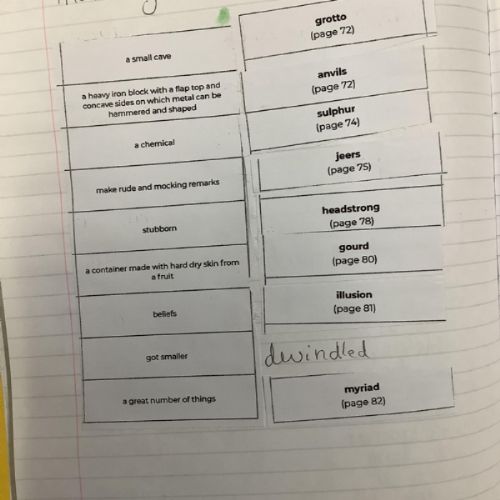 a small cave
grotto
(page 72)
a heavy iron block with a flap top and
concave sides on which metal can be
hammered and shaped
anvils
(page 72)
a chemical
sulphur
(page 74)
make rude and mocking remarks
jeers
(page 75)
stubborn
headstrong
(page 78)
a container made with hard dry skin from
a fruit
gourd
(page 80)
beliefs
illusion
(page 81)
got smaller
dwindled
a great number of things
myriad
(page 82)